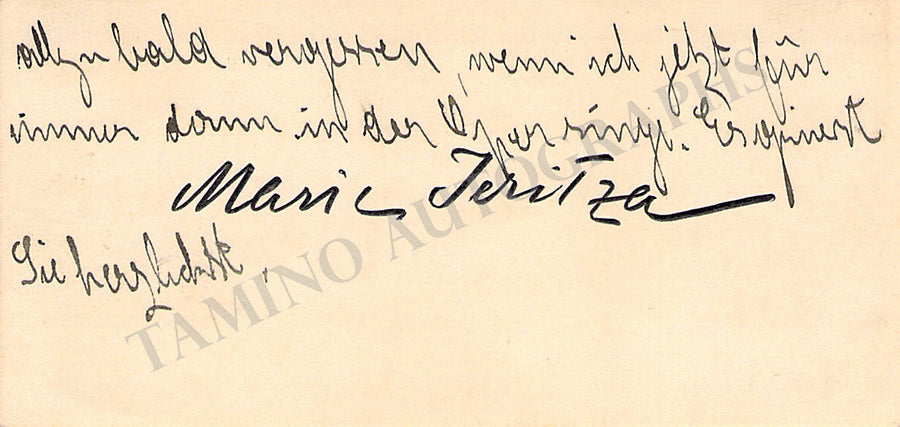 allzu bald vergessen, wenn ich jetzt für
immer dann in der Oper singe. Es grüsst
Marie Jeritza
Sie herzlichst
TAMINO AUTOGRAPHS